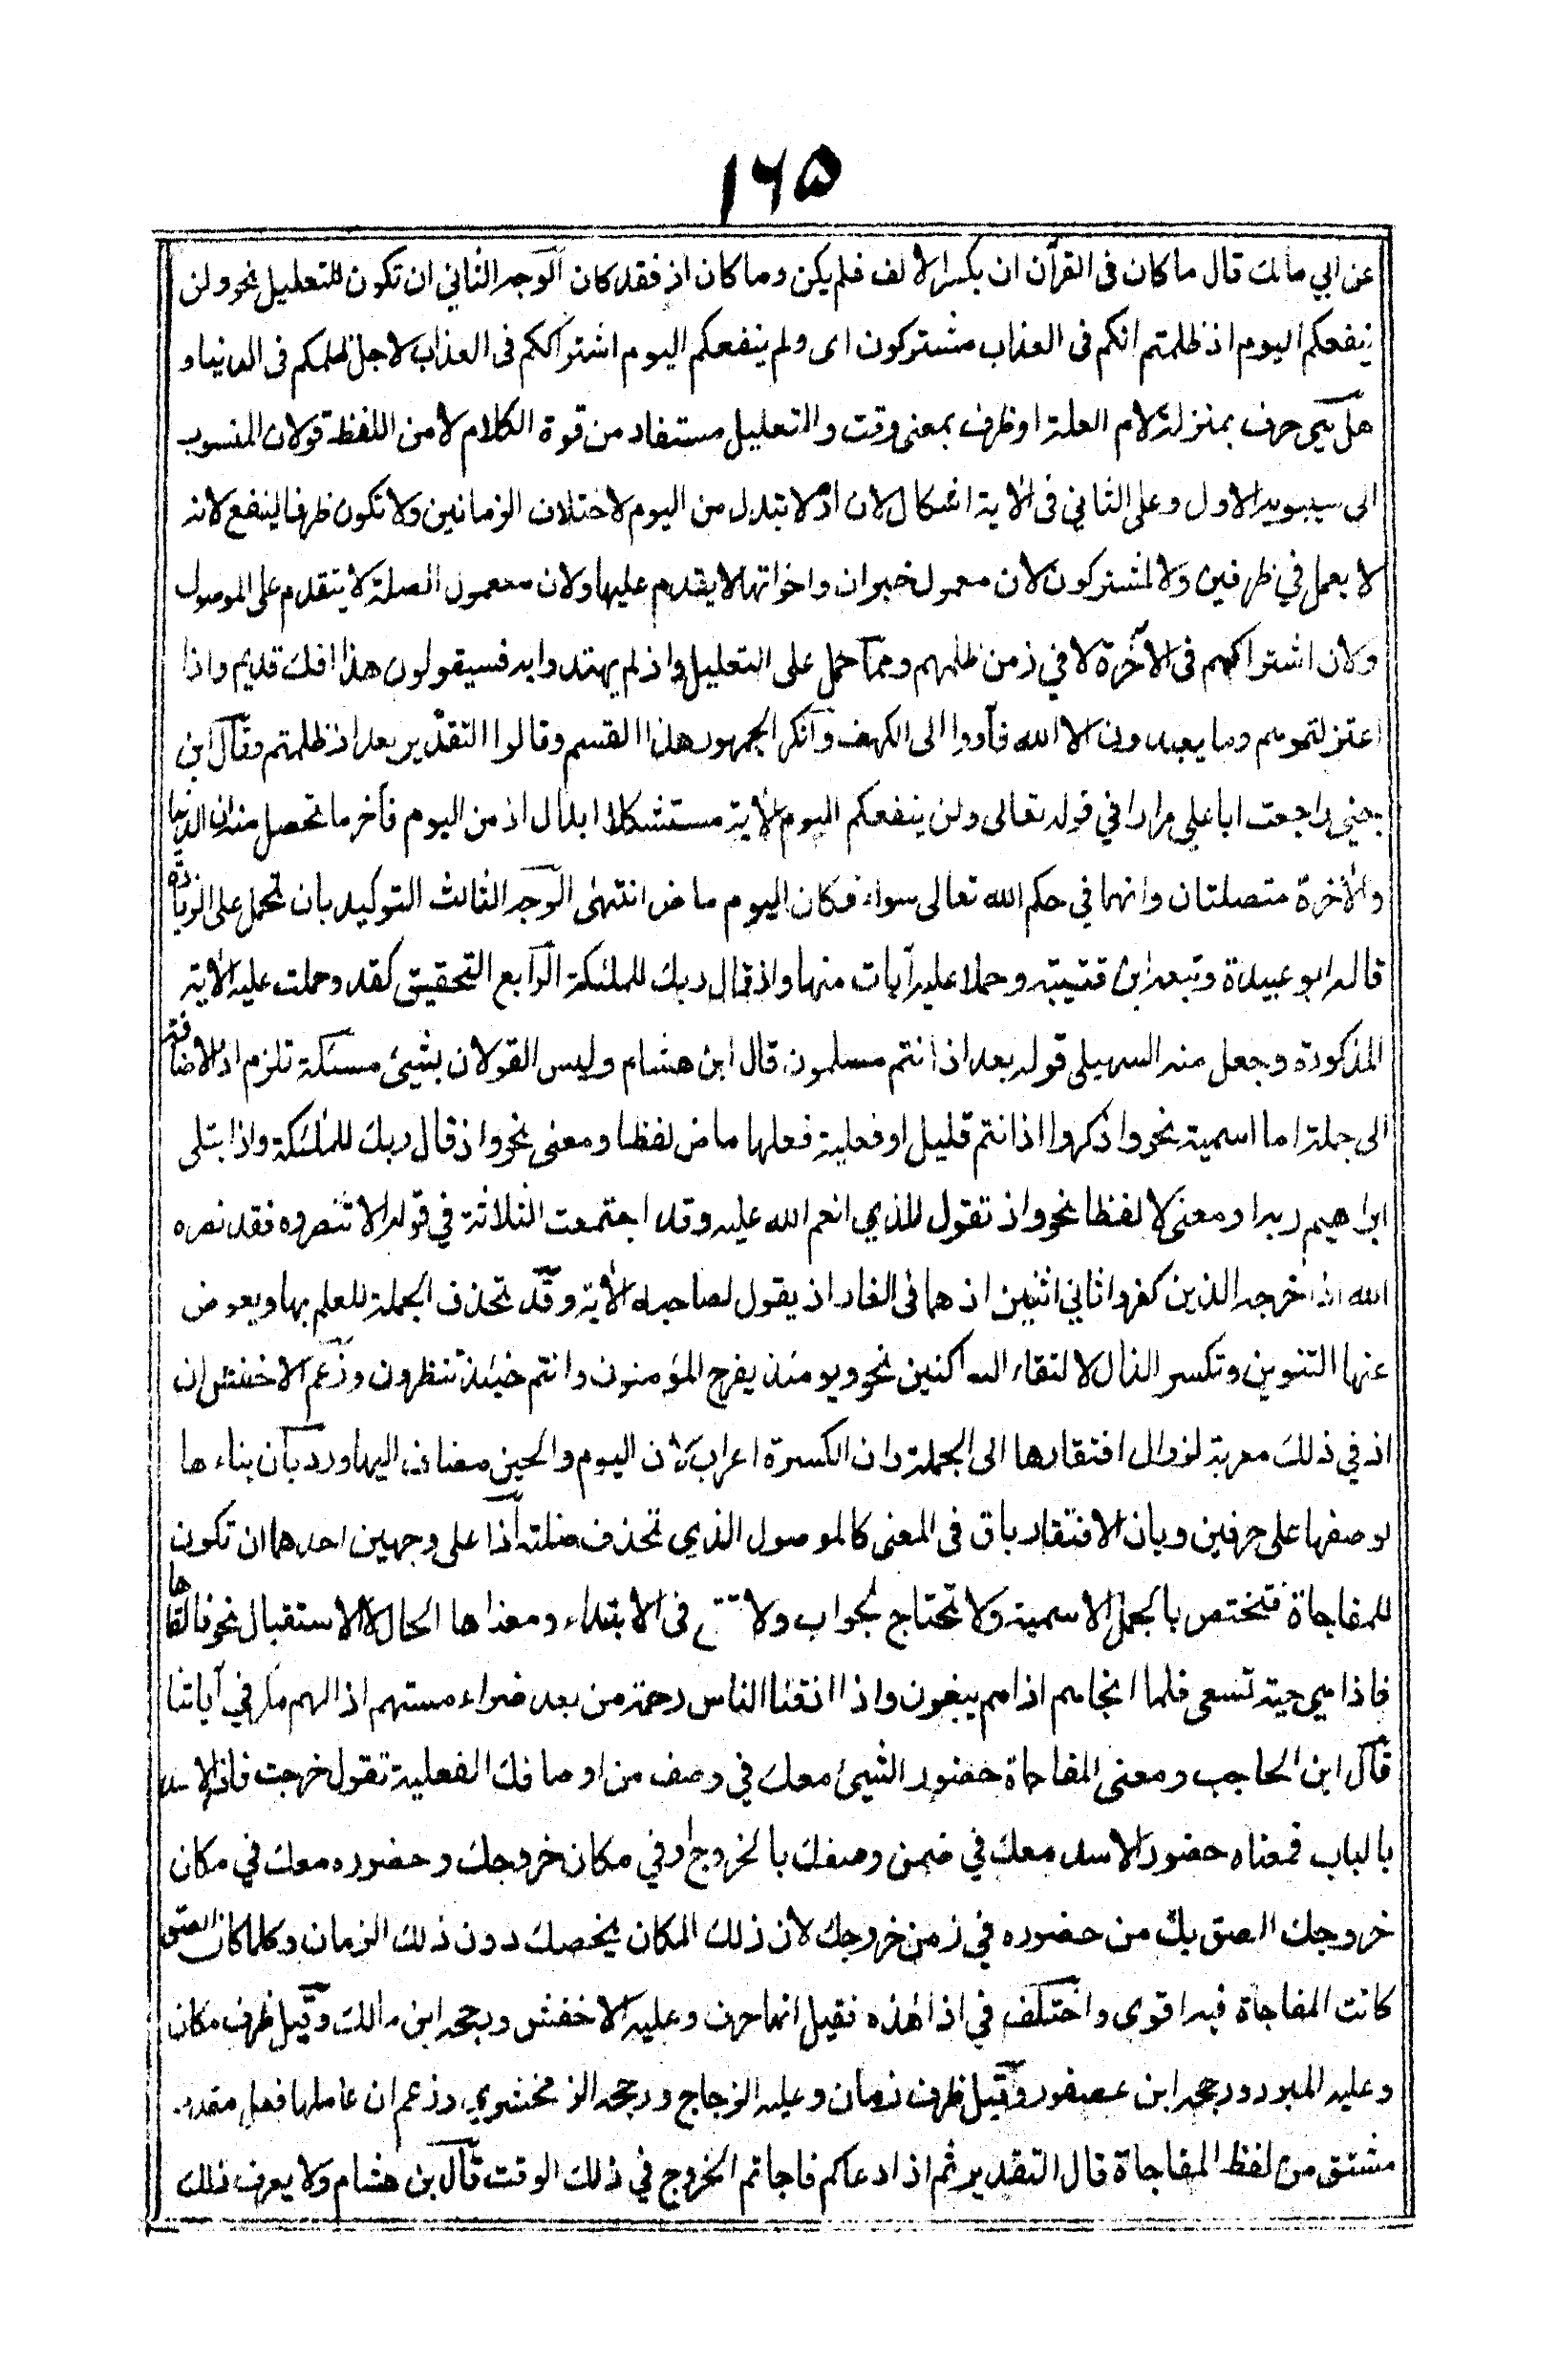 ١٦٥
عن ابي مالك قال ما كان في القرآن ان بكسر الالف فلم يكن وما كان اذ فقد كان الوجه الثاني ان تكون للتعليل نحو ولن
ينفعكم اليوم اذ ظلمتم انكم في العذاب مشتركون اى ولم ينفعكم اليوم اشتراككم في العذاب لاجل ظلمكم في الدنيا و
هل هي حرف بمنزلة لام العلة او ظرف بمعنى وقت والتعليل مستفاد من قوة الكلام لا من اللفظ قولان المنسوب
الى سيبويه الاول وعلى الثاني في الاية اشكال لان اذ لا تبدل من اليوم لاختلاف الزمانين ولا تكون ظرفا لينفع لانه
لا يعمل في ظرفين ولا لمشتركون لان معمول خبر ان واخواتها لا يقدم عليها ولان معمول الصلة لا يتقدم على الموصول
ولان اشتراكهم في الآخرة لا في زمن ظلمهم ومما حمل على التعليل واذ لم يهتدوا به فسيقولون هذا افك قديم واذا
اعتزلتموهم وما يعبدون الا الله فأووا الى الكهف وانكر الجمهور هذا القسم وقالوا التقدير بعد اذ ظلمتم وقال ابن
جني راجعت ابا علي مرارا في قوله تعالى ولن ينفعكم اليوم الاية مستشكلا ابدال اذ من اليوم فآخر ما تحصل منه ان الدنيا
والآخرة متصلتان وانهما في حكم الله تعالى سواء فكان اليوم ماض انتهى الوجه الثالث التوكيد بان تحمل على الزيادة
قاله ابو عبيدة وتبعه ابن قتيبة وحملا عليه آيات منها واذ قال ربك للملئكة الرابع التحقيق كقد وحملت عليه الاية
المذكورة وجعل منه السهيلي قوله بعد اذ انتم مسلمون قال ابن هشام وليس القولان بشيئ مسئلة تلزم اذ الاضافة
الى جملة اما اسمية نحو واذكروا اذ انتم قليل او فعلية فعلها ماض لفظا ومعنى نحو واذ قال ربك للملئكة واذ ابتلى
ابراهيم ربه او معنى لا لفظا نحو واذ تقول للذي انعم الله عليه وقد اجتمعت الثلاثة في قوله الا تنصروه فقد نصره
الله اذ اخرجه الذين كفروا ثاني اثنين اذ هما في الغار اذ يقول لصاحبه الاية وقد تحذف الجملة للعلم بها ويعوض
عنها التنوين وتكسر الذال لالتقاء الساكنين نحو ويومئذ يفرح المؤمنون وانتم حينئذ تنظرون وزعم الاخفش ان
اذ في ذلك معربة لزوال افتقارها الى الجملة وان الكسرة اعراب لان اليوم والحين مضاف اليها ورد بأن بناءها
لوضعها على حرفين وبان الافتقار باق في المعنى كالموصول الذي تحذف صلته اذا على وجهين احدهما ان تكون
للمفاجاة فتختص بالجمل الاسمية ولا تحتاج لجواب ولا تقع في الابتداء ومعناها الحال لا الاستقبال نحو فالقاها
فاذا هي حية تسعى فلما انجاهم اذا هم يبغون واذا اذقنا الناس رحمة من بعد ضراء مستهم اذا لهم مكر في آياتنا
قال ابن الحاجب ومعنى المفاجاة حضور الشيئ معك في وصف من اوصافك الفعلية تقول خرجت فاذا الاسد
بالباب فمعناه حضور الاسد معك في ضمن وصفك بالخروج او في مكان خروجك وحضوره معك في مكان
خروجك الصق بك من حضوره في زمن خروجك لان ذلك المكان يخصك دون ذلك الزمان وكلما كان الصق
كانت المفاجاة فيه اقوى واختلف في اذا هذه فقيل انها حرف وعليه الاخفش ورجحه ابن مالك وقيل ظرف مكان
وعليه المبرد ورجحه ابن عصفور وقيل ظرف زمان وعليه الزجاج ورجحه الزمخشري وزعم ان عاملها فعل مقدر
مشتق من لفظ المفاجاة قال التقدير ثم اذا دعاكم فاجاتم الخروج في ذلك الوقت قال بن هشام ولا يعرف ذلك